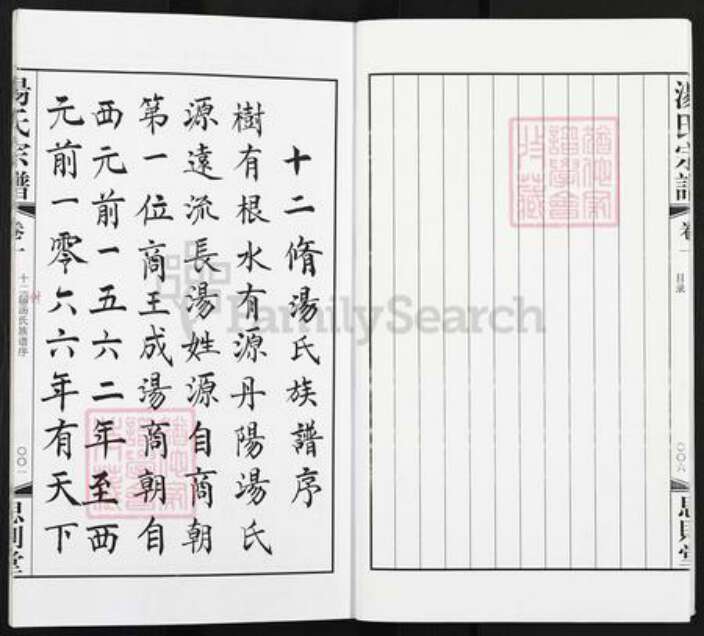 湯氏宗譜
卷一
目录
〇〇六
思則堂
十二脩湯氏族譜序
樹有根水有源丹陽湯氏
源遠流長湯姓源自商朝
第一位商王成湯商朝自
西元前一五六二年至西
元前一零六六年有天下
湯氏宗譜
卷一
十二脩湯氏族谱序
〇〇一
思則堂
FamilySearch